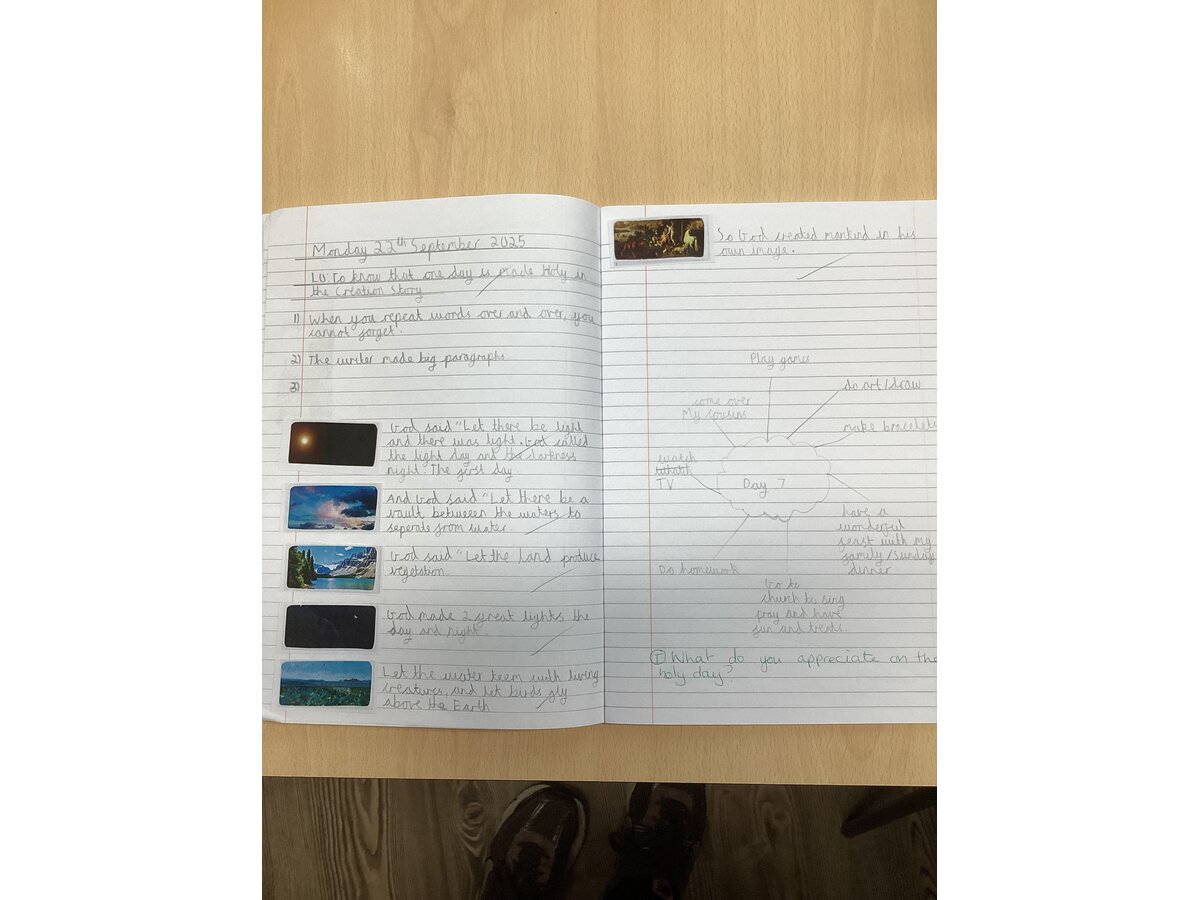 Monday 22th September 2025
LO: To know that one day is made Holy in
the Creation Story
1) When you repeat words over and over, you
cannot forget.
2) The writer made big paragraphs.
3)
God said "Let there be light
and there was light. God called
the light day and the darkness
night. The first day.
And God said "Let there be a
vault betweeen the waters to
seperate from water.
God said "Let the land produce
vegetation.
God made 2 great lights the
day and night.
Let the water teem with living
creatures, and let birds fly
above the Earth
So God created mankind in his
own image.
Play games
do art/draw
come over
My cousins
make bracelets
watch
whatch
TV
Day 7
have a
wonderful
feast with my
family/Sunday
dinner
Do homework
Go to
church to sing
pray and have
fun and treats.
T What do you appreciate on the
holy day?